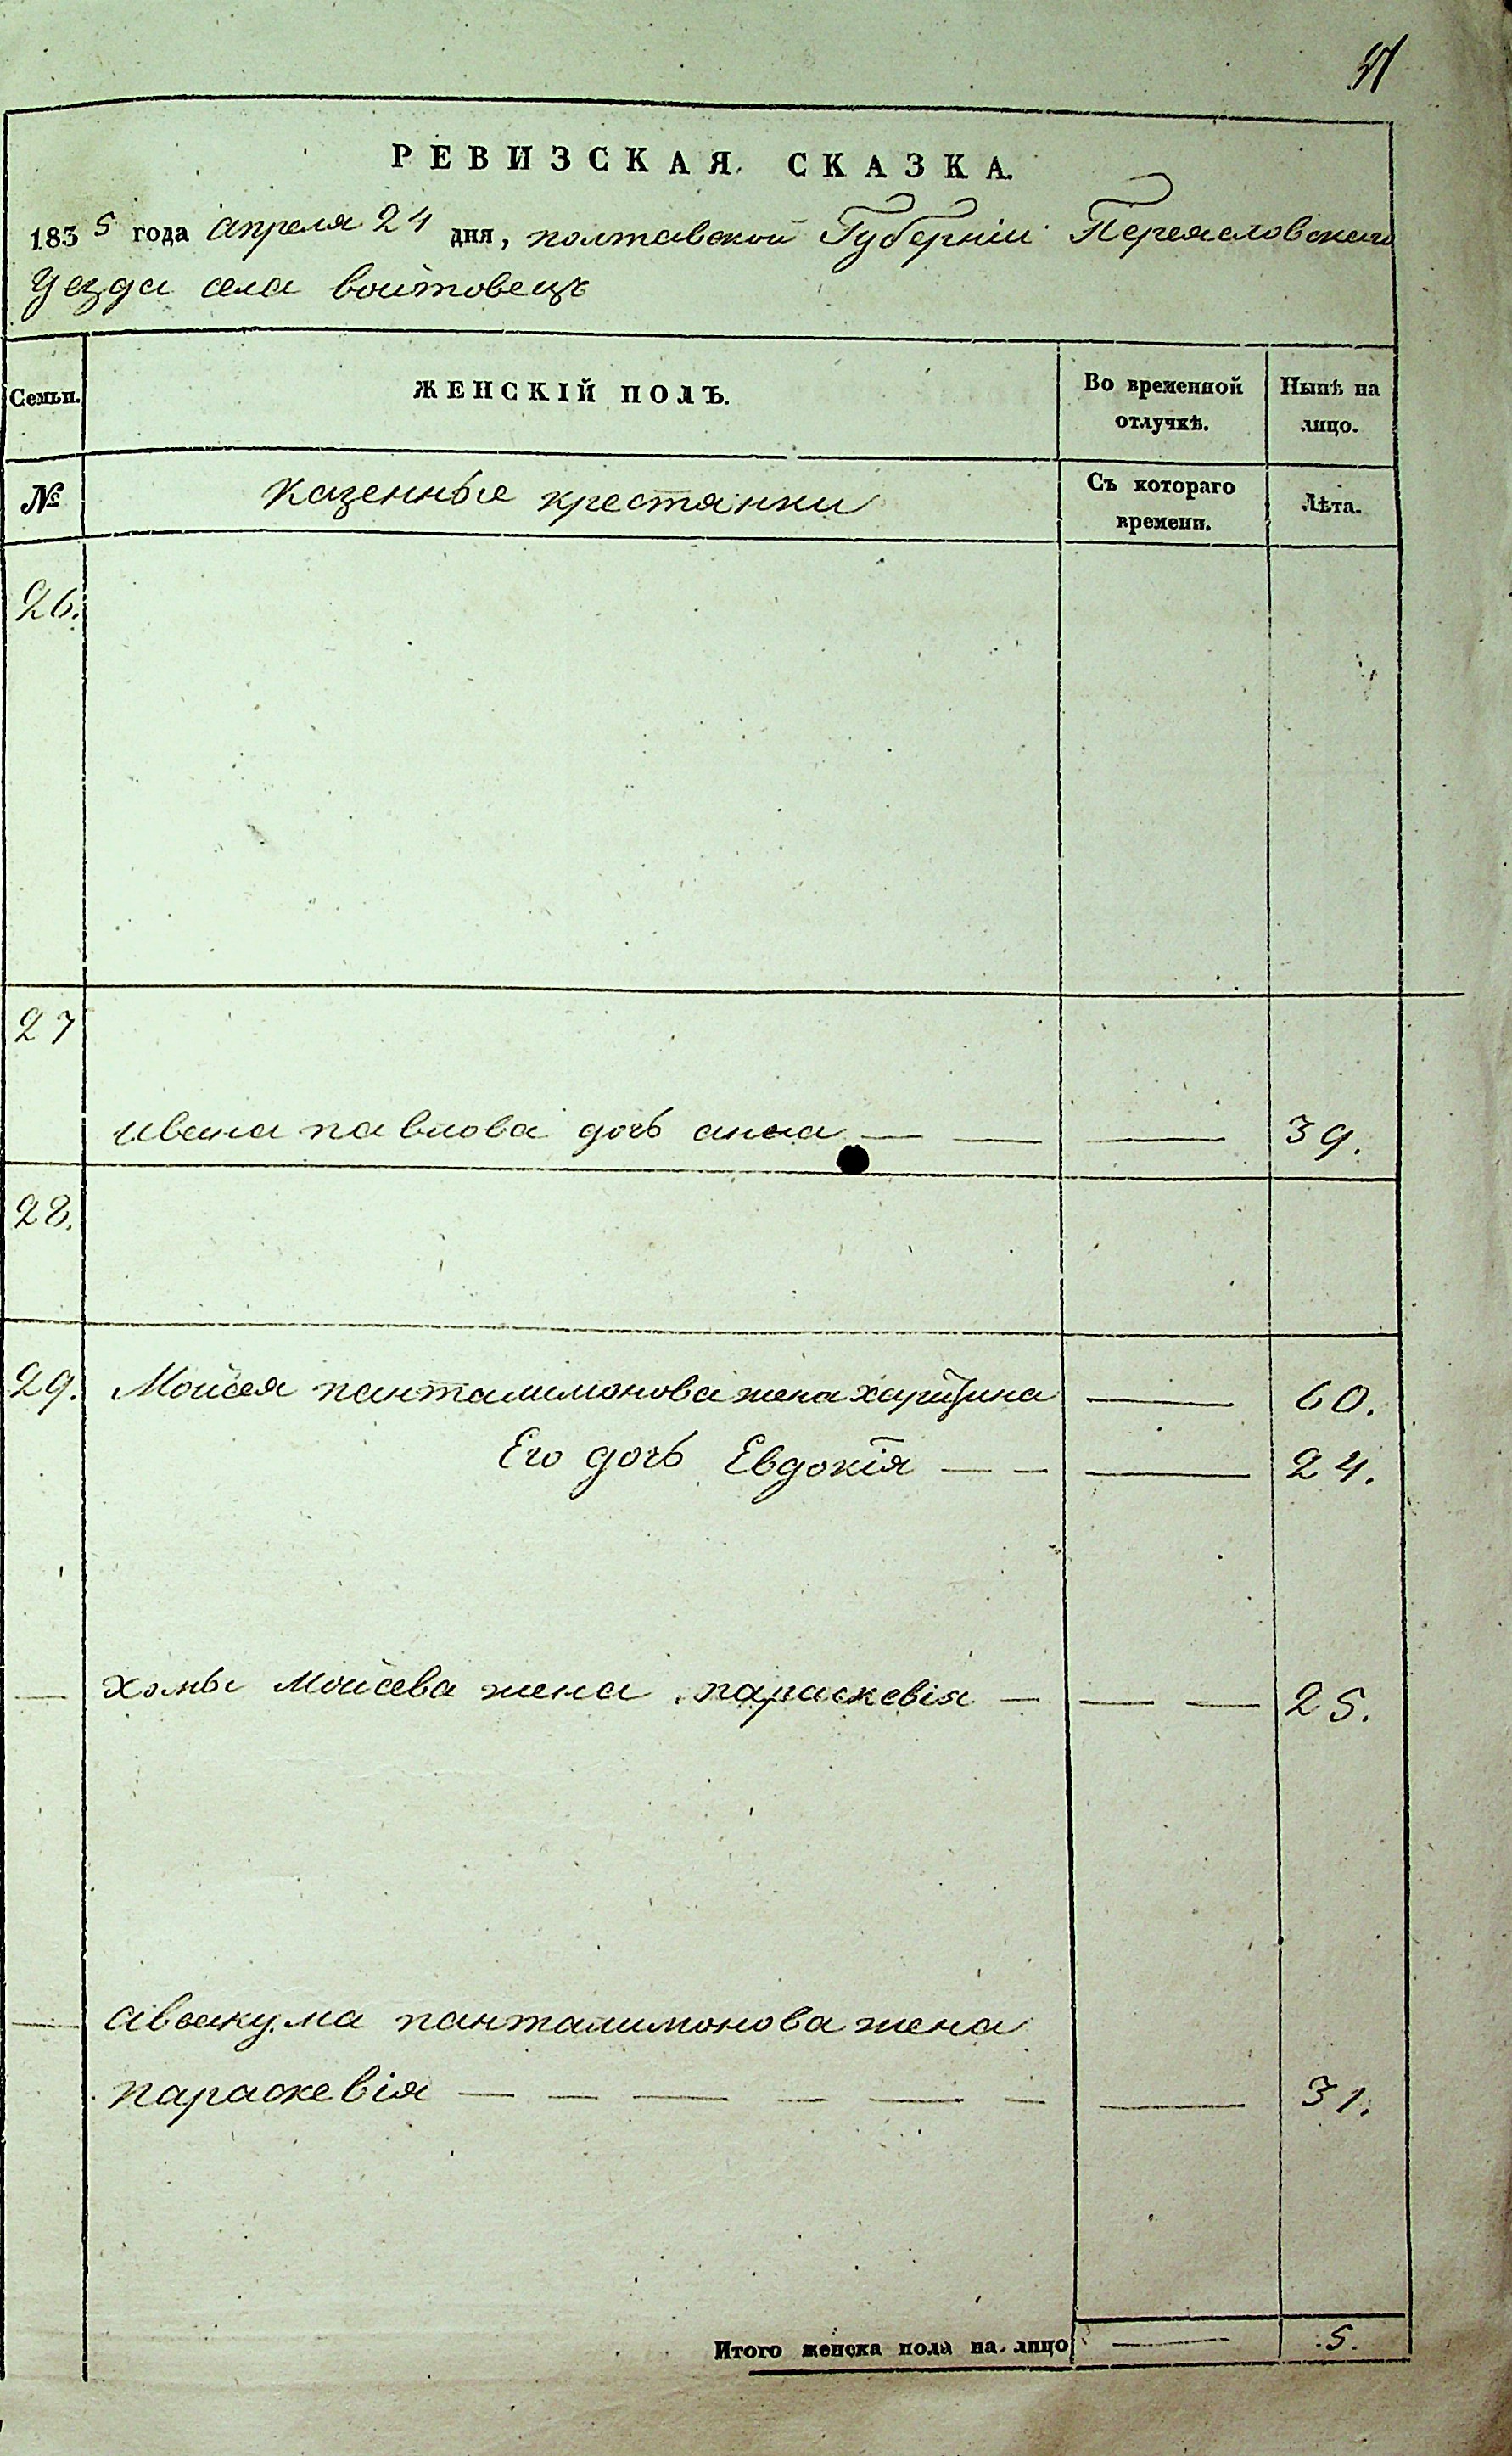 РЕВИЗСКАЯ СКАЗКА.
1835 года апреля 24 дня, полтавской Губернiи Переясловского
уезда села войтовецъ
Семьи. ЖЕНСКІЙ ПОЛЪ. Во временной отлучкѣ. Нынѣ на лицо.
№ казенные крестянки Съ котораго времени. Лѣта.
26.
27
ивана павлова дочь анна — — — 39.
28.
29. Мойсея панталимонова жена харитина — 60.
Его дочь Евдокiя — — — 24.
— хомы Мойсева жена параскевiя — — — 25.
— авакума панталимонова жена
параскевiя — — — — — — — 31.
Итого женска пола на лицо — 5.